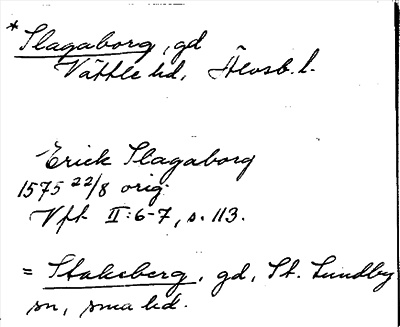 *Slagaborg, gd
Vättle hd, Älvsb. l.
Erick Slagaborg
1575 22/8 orig.
Vft II:6-7, s. 113.
= Stakeberg, gd, St. Lundby
sn, sma hd.